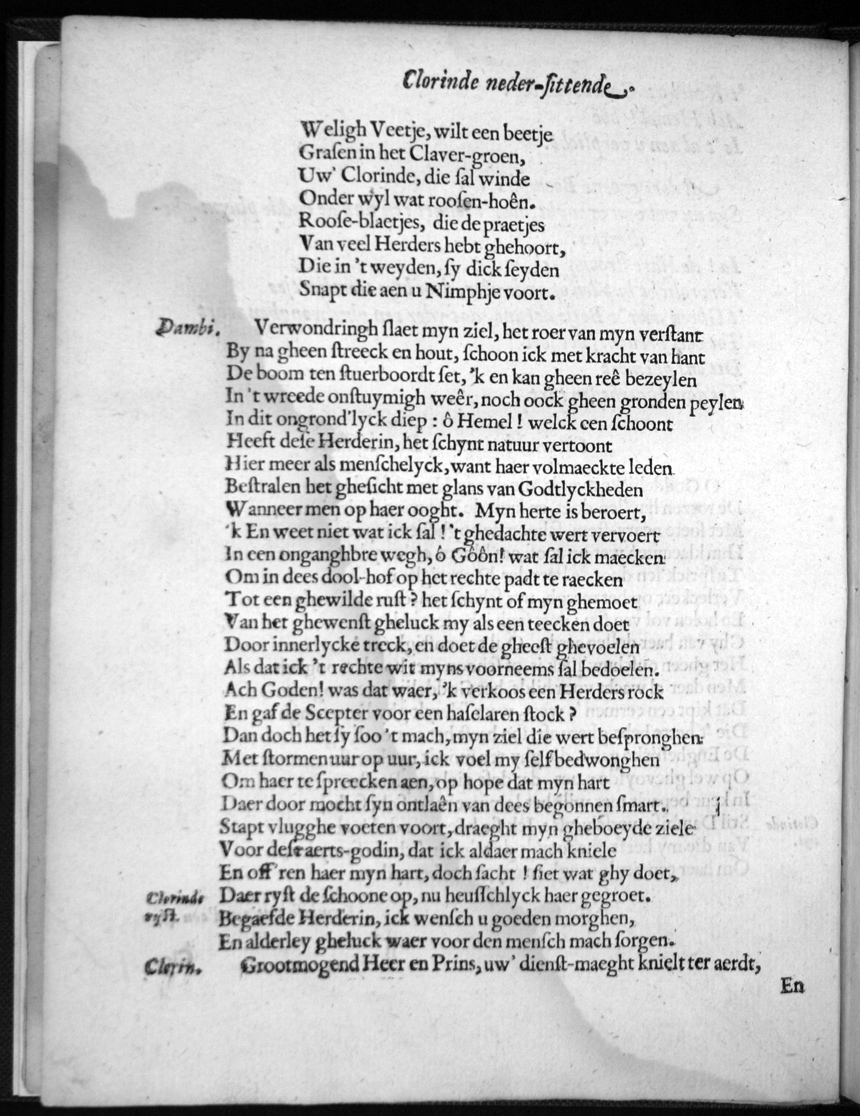 Clorinde neder-ſittende.
Weligh Veetje, wilt een beetje
Graſen in het Claver-groen,
Uw' Clorinde, die ſal winde
Onder wyl wat rooſen-hoên.
Rooſe-blaetjes, die de praetjes
Van veel Herders hebt ghehoort,
Die in 't weyden, ſy dick ſeyden
Snapt die aen u Nimphje voort.
Dambi. Verwondringh ſlaet myn ziel, het roer van myn verſtant
By na gheen ſtreeck en hout, ſchoon ick met kracht van hant
De boom ten ſtuerboordt ſet, 'k en kan gheen reê bezeylen
In 't wreede onſtuymigh weêr, noch oock gheen gronden peylen
In dit ongrond'lyck diep : ô Hemel ! welck een ſchoont
Heeft deſe Herderin, het ſchynt natuur vertoont
Hier meer als menſchelyck, want haer volmaeckte leden
Beſtralen het gheſicht met glans van Godtlyckheden
Wanneer men op haer ooght. Myn herte is beroert,
'k En weet niet wat ick ſal ! 't ghedachte wert vervoert
In een onganghbre wegh, ô Gôôn! wat ſal ick maecken
Om in dees dool-hof op het rechte padt te raecken
Tot een ghewilde ruſt ? het ſchynt of myn ghemoet
Van het ghewenſt gheluck my als een teecken doet
Door innerlycke treck, en doet de gheeſt ghevoelen
Als dat ick 't rechte wit myns voorneems ſal bedoelen.
Ach Goden! was dat waer, 'k verkoos een Herders rock
En gaf de Scepter voor een haſelaren ſtock ?
Dan doch het ſy ſoo 't mach, myn ziel die wert beſpronghen
Met ſtormen uur op uur, ick voel my ſelf bedwonghen
Om haer te ſpreecken aen, op hope dat myn hart
Daer door mocht ſyn ontlaên van dees begonnen ſmart.
Stapt vlugghe voeten voort, draeght myn gheboeyde ziele
Voor deſ' aerts-godin, dat ick aldaer mach kniele
En off'ren haer myn hart, doch ſacht ! ſiet wat ghy doet,
Clorinde Daer ryſt de ſchoone op, nu heuſſchlyck haer gegroet.
ryſt. Begaefde Herderin, ick wenſch u goeden morghen,
En alderley gheluck waer voor den menſch mach ſorgen.
Clorin. Grootmogend Heer en Prins, uw' dienſt-maeght knielt ter aerdt,
En